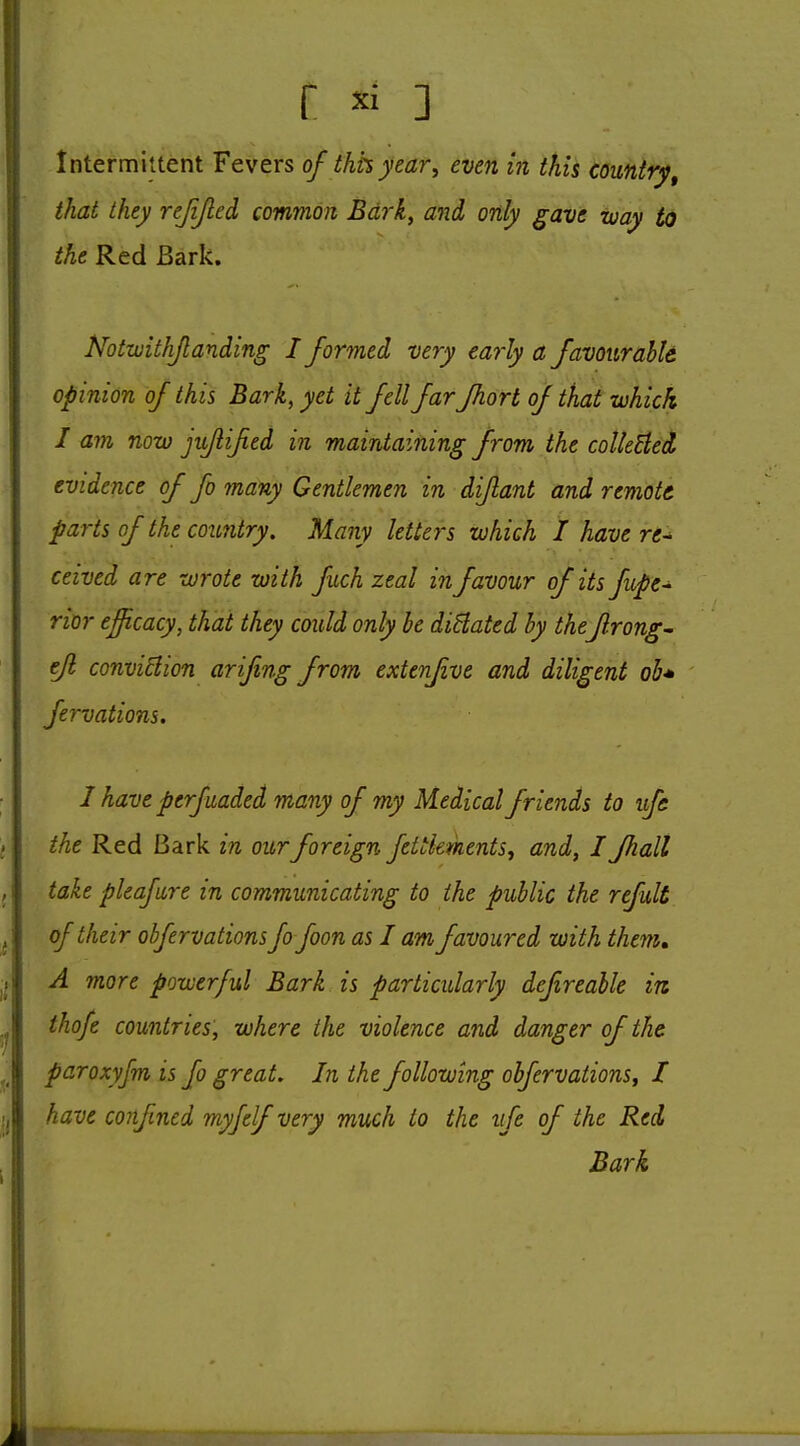 [ xi ]
Intermittent Fevers of this year, even in this country,
that they reſiſted common Bark, and only gave way to
the Red Bark.
Notwithſtanding I formed very early a favourable
opinion of this Bark, yet it fell far ſhort of that which
I am now juſtified in maintaining from the collected
evidence of ſo many Gentlemen in diſtant and remote
parts of the country. Many letters which I have re-
ceived are wrote with ſuch zeal in favour of its ſupe-
rior efficacy, that they could only be dictated by the ſtrong-
eſt conviction ariſing from extenſive and diligent ob-
ſervations.
I have perſuaded many of my Medical friends to uſe
the Red Bark in our foreign ſettlements, and, I ſhall
take pleaſure in communicating to the public the reſult
of their obſervations ſo ſoon as I am favoured with them.
A more powerful Bark is particularly deſireable in
thoſe countries, where the violence and danger of the
paroxyſm is ſo great. In the following obſervations, I
have confined myſelf very much to the uſe of the Red
Bark